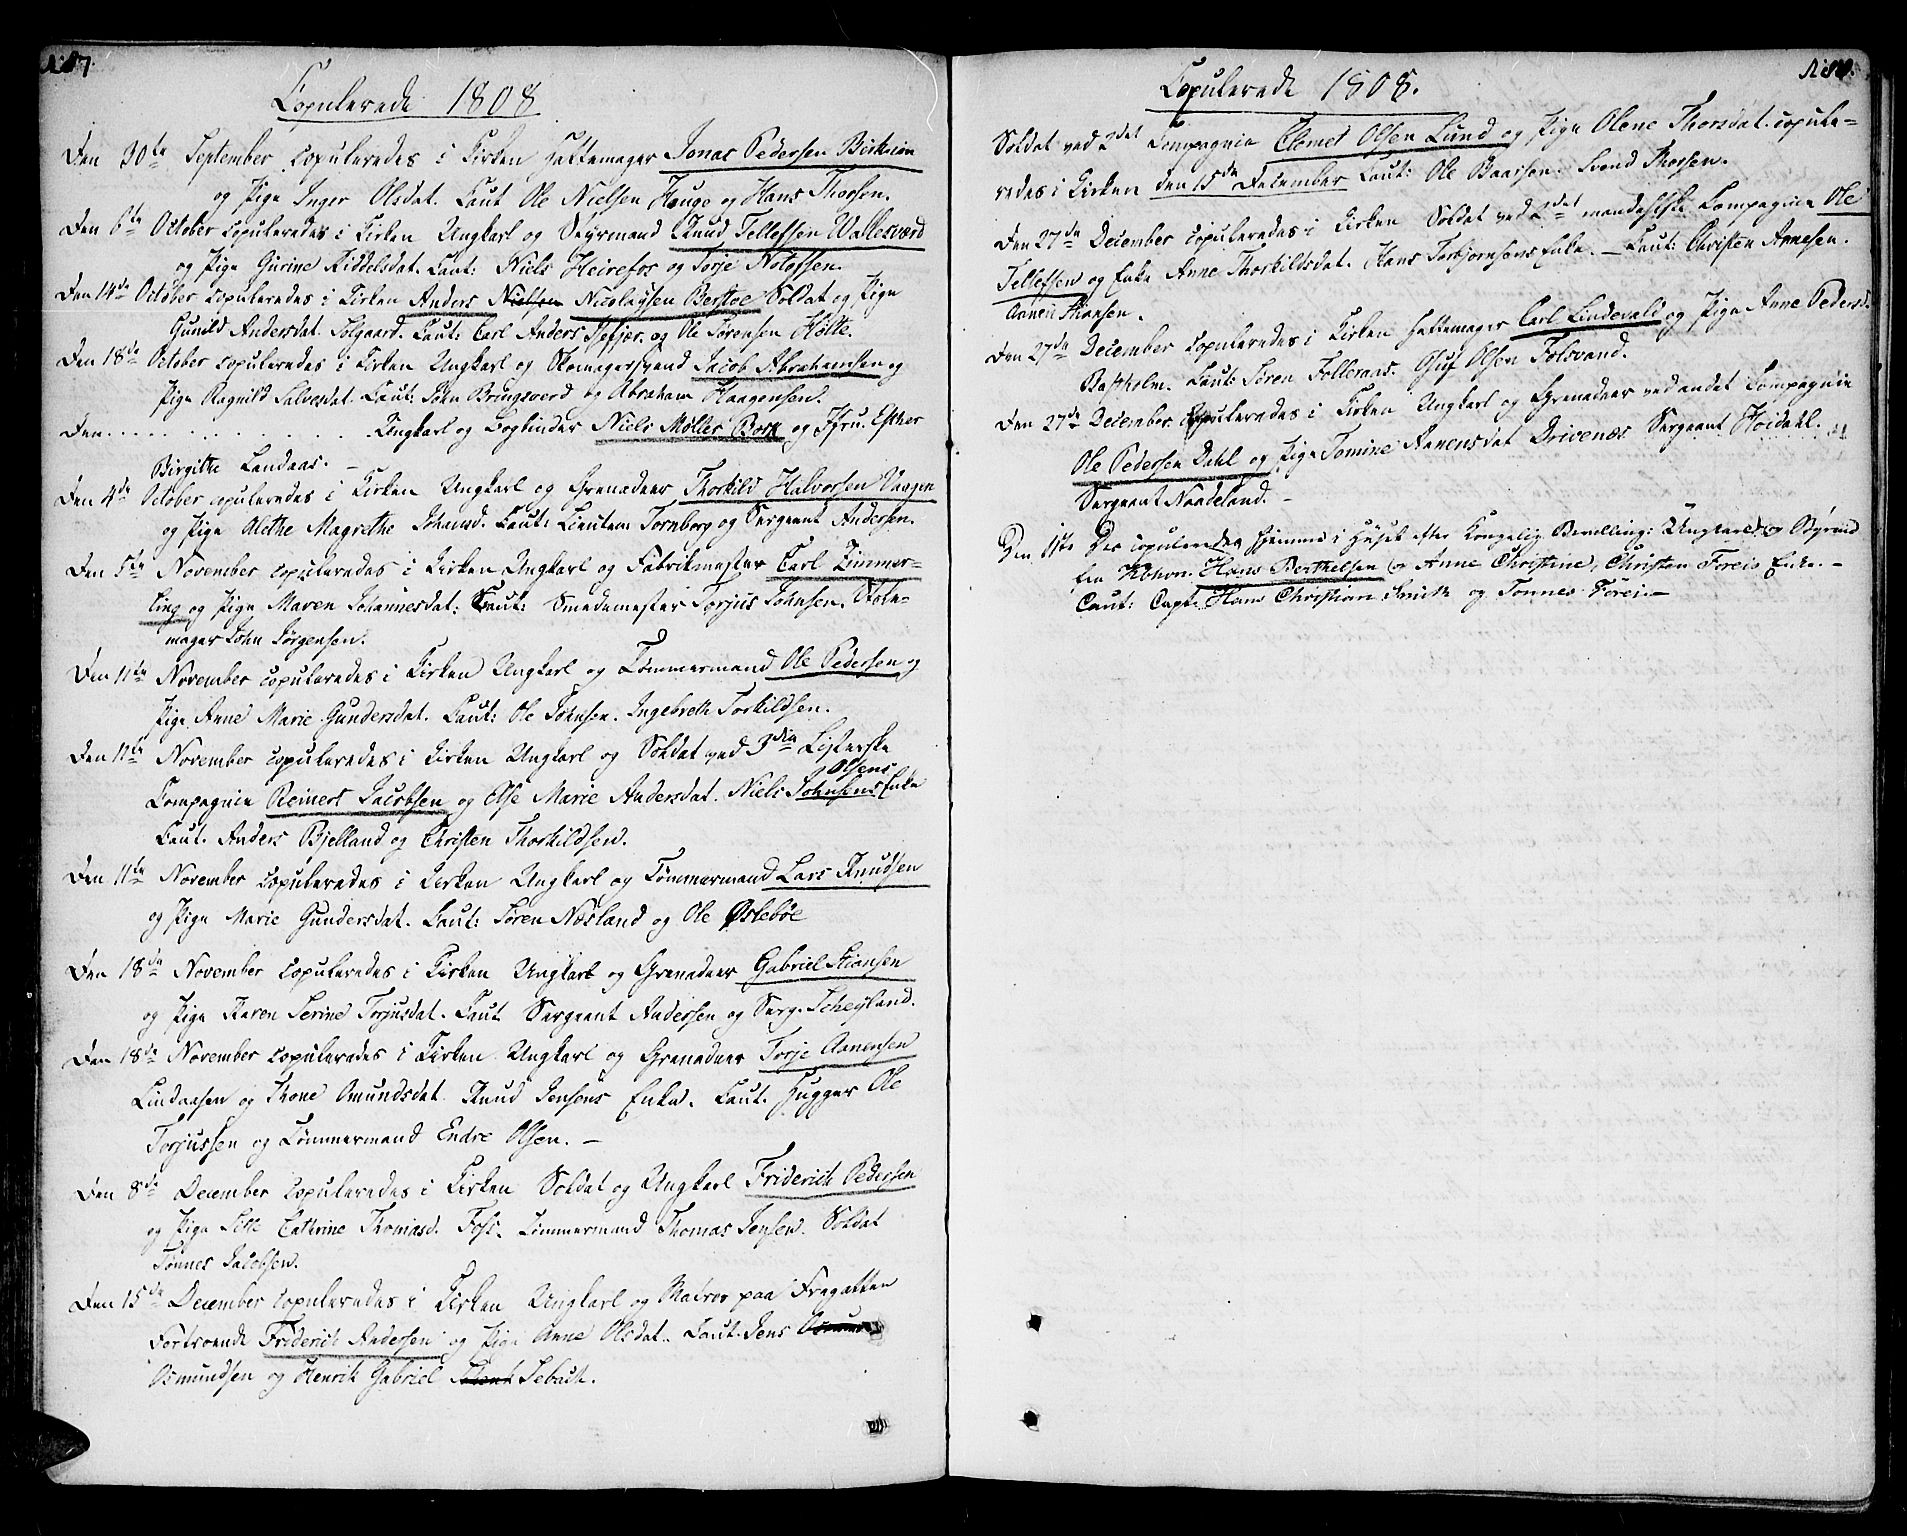 Copulerede 1808
Den 30te September copuleredes i Kirken Hattemager Jonas Pedersen Birknin
og Pige Inger Olsdat. Caut Ole Nielsen Houge og Hans Thorsen.
Den 6te October copuleredes i Kirken Ungkarl og Styrmand Knud Tellefsen Wallesværd
og Pige Gurine Riddelsdat. Caut: Niels Heirefos og Torje Notofsen.
Den 14de October copuleredes i Kirken Anders Nielsen Nicolaysen Berstoe Soldat og Pige
Gunild Andersdat. Solgaard. Caut: Carl Anders og Ole Sørensen Holte.
Den 18de October copuleredes i Kirken Ungkarl og Skomagersvend Jacob Abrahamsen og
Pige Ragnild Salvesdat. Caut. John Bringsverd og Abraham Haagensen.
Den . . . . . . . . . . . . Ungkarl og Bogbinder Niels Møller Bork og Jfru. Esther
Birgitte Landaas. –
Den 4de October copuleredes i Kirken Ungkarl og Grenadeer Thorkild Halvorsen Vaagen
og Pige Alethe Magrethe Johansd. Caut: Lieuten: Tornborg og Sergeant Andersen.
Den 5te November copuleredes i Kirken Ungkarl og Fabrikmester Carl Zimmer=
ling og Pige Maren Johannesdat: Caut: Smedemester Torjus Johnsen. Stole=
mager John Jørgensen.
Den 11te November copuleredes i Kirken Ungkarl og Tømmermand Ole Pedersen og
Pige Anne Marie Gundersdat. Caut: Ole Johnsen. Ingebreth Torkildsen.
Den 11te November copuleredes i Kirken Ungkarl og Soldat ved 3die Listerske
Olsens
Compagnie Reinert Jacobsen og Else Marie Andersdat. Niels Johnsens Enke
Caut. Anders Bjelland og Christen Thorkildsen.
Den 11te November copuleredes i Kirken Ungkarl og Tømmermand Lars Knudsen
og Pige Marie Gundersdat. Caut: Søren Næsland og Ole Oslebøe
Den 18de November copuleredes i Kirken Ungkarl og Grenadeer Gabriel Stiansen
og Pige Karen Serine Torjusdat. Caut Sergeant Andersen og Serg. Scheyland.
Den 18de November copuleredes i Kirken Ungkarl og Grenadeer Torje Aanensen
Lindaasen og Thone Omundsdat Knud Jensens Enke. Caut. Hugger Ole
Torjussen og Tømmermand Endre Olsen. –
Den 8de December copuleredes i Kirken Soldat og Ungkarl Friderich Pedersen
og Pige Sille Cathrine Thomasd. Foss. Tømmermand Thomas Jensen. Soldat
Tønnes Jacobsen.
Den 15de December copuleredes i Kirken Ungkarl og Matros paa Fregatten
Fortroende Friderich Andersen og Pige Anne Olsdat. Caut. Jens
Osmundsen og Henrik Gabriel Sebach.
Copulerede 1808.
Soldat ved 2det Compagnie Clemet Olsen Lund og Pige Olene Thorsdat. copule=
redes i Kirken den 15de December Caut: Ole Baarsen. Svend Thorsen.
Den 27de December copuleredes i Kirken Soldat ved 2det mandalske Compagnie Ole
Tellefsen og Enke Anne Thorkildsdat. Hans Torbjørnsens Enke. – Caut: Christen Annesen.
Aanen Hansen.
Den 27de December copuleredes i Kirken Hattemager Carl Lindevald og Pige Anne Pedersd.
Bastholm. Caut: Søren Tolleraas. Gluf Olsen Tolsvand.
Den 27de December. Copuleredes i Kirken Ungkarl og Grenadeer ved andet Compagnie
Ole Pedersen Dahl og Pige Tomine Aanensdat Drivenæs Sergeant Høidahl.
Sergeant Naadeland. –
Den 11te Dec copuleredes hjemme i Huset efter Kongelig Bevilling: Ungkarl og Styrmd
fra Kbhvn. Hans Berthelsen og Anne Christine, Christen Foreis Enke. –
Caut: Capt. Hans Christian Smith og Tønnes Förei. –